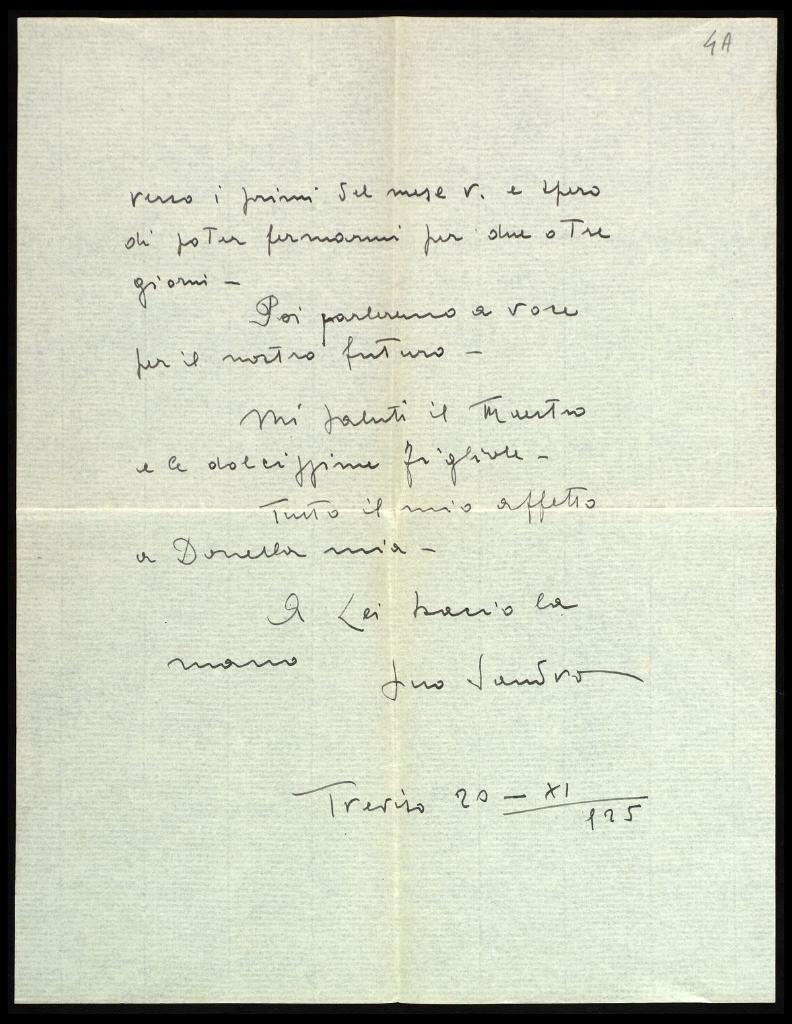 4A
verso i primi del mese v. e spero
di poter fermarmi per due o Tre
giorni –
Poi parleremo a voce
per il nostro futuro –
Mi saluti il Maestro
e le dolcissime figliole –
Tutto il mio affetto
a Donella mia –
A Lei bacio la
mano
Suo Sandro
Treviso 20 – XI
925